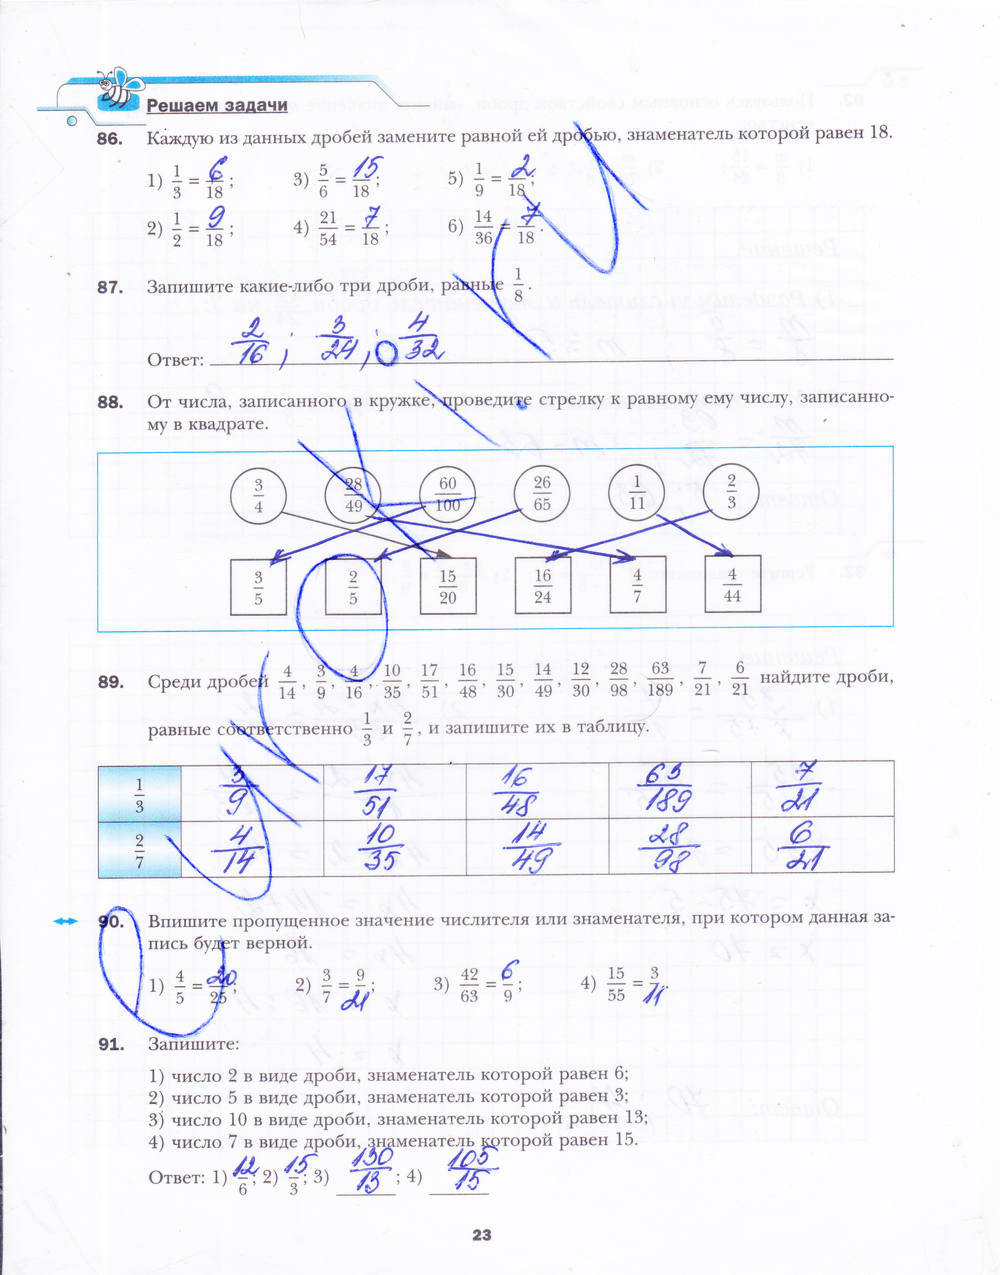 Решаем задачи
86. Каждую из данных дробей замените равной ей дробью, знаменатель которой равен 18.
1) 1/3 = 6/18; 3) 5/6 = 15/18; 5) 1/9 = 2/18;
2) 1/2 = 9/18; 4) 21/54 = 7/18; 6) 14/36 = 7/18.
87. Запишите какие-либо три дроби, равные 1/8.
Ответ: 2/16; 3/24; 4/32
88. От числа, записанного в кружке, проведите стрелку к равному ему числу, записанно-
му в квадрате.
3/4 28/49 60/100 26/65 1/11 2/3
3/5 2/5 15/20 16/24 4/7 4/44
89. Среди дробей 4/14, 3/9, 4/16, 10/35, 17/51, 16/48, 15/30, 14/49, 12/30, 28/98, 63/189, 7/21, 6/21 найдите дроби,
равные соответственно 1/3 и 2/7, и запишите их в таблицу.
1/3 3/9 17/51 16/48 63/189 7/21
2/7 4/14 10/35 14/49 28/98 6/21
90. Впишите пропущенное значение числителя или знаменателя, при котором данная за-
пись будет верной.
1) 4/5 = 20/25; 2) 3/7 = 9/21; 3) 42/63 = 6/9; 4) 15/55 = 3/11.
91. Запишите:
1) число 2 в виде дроби, знаменатель которой равен 6;
2) число 5 в виде дроби, знаменатель которой равен 3;
3) число 10 в виде дроби, знаменатель которой равен 13;
4) число 7 в виде дроби, знаменатель которой равен 15.
Ответ: 1) 12/6; 2) 15/3; 3) 130/13; 4) 105/15
23